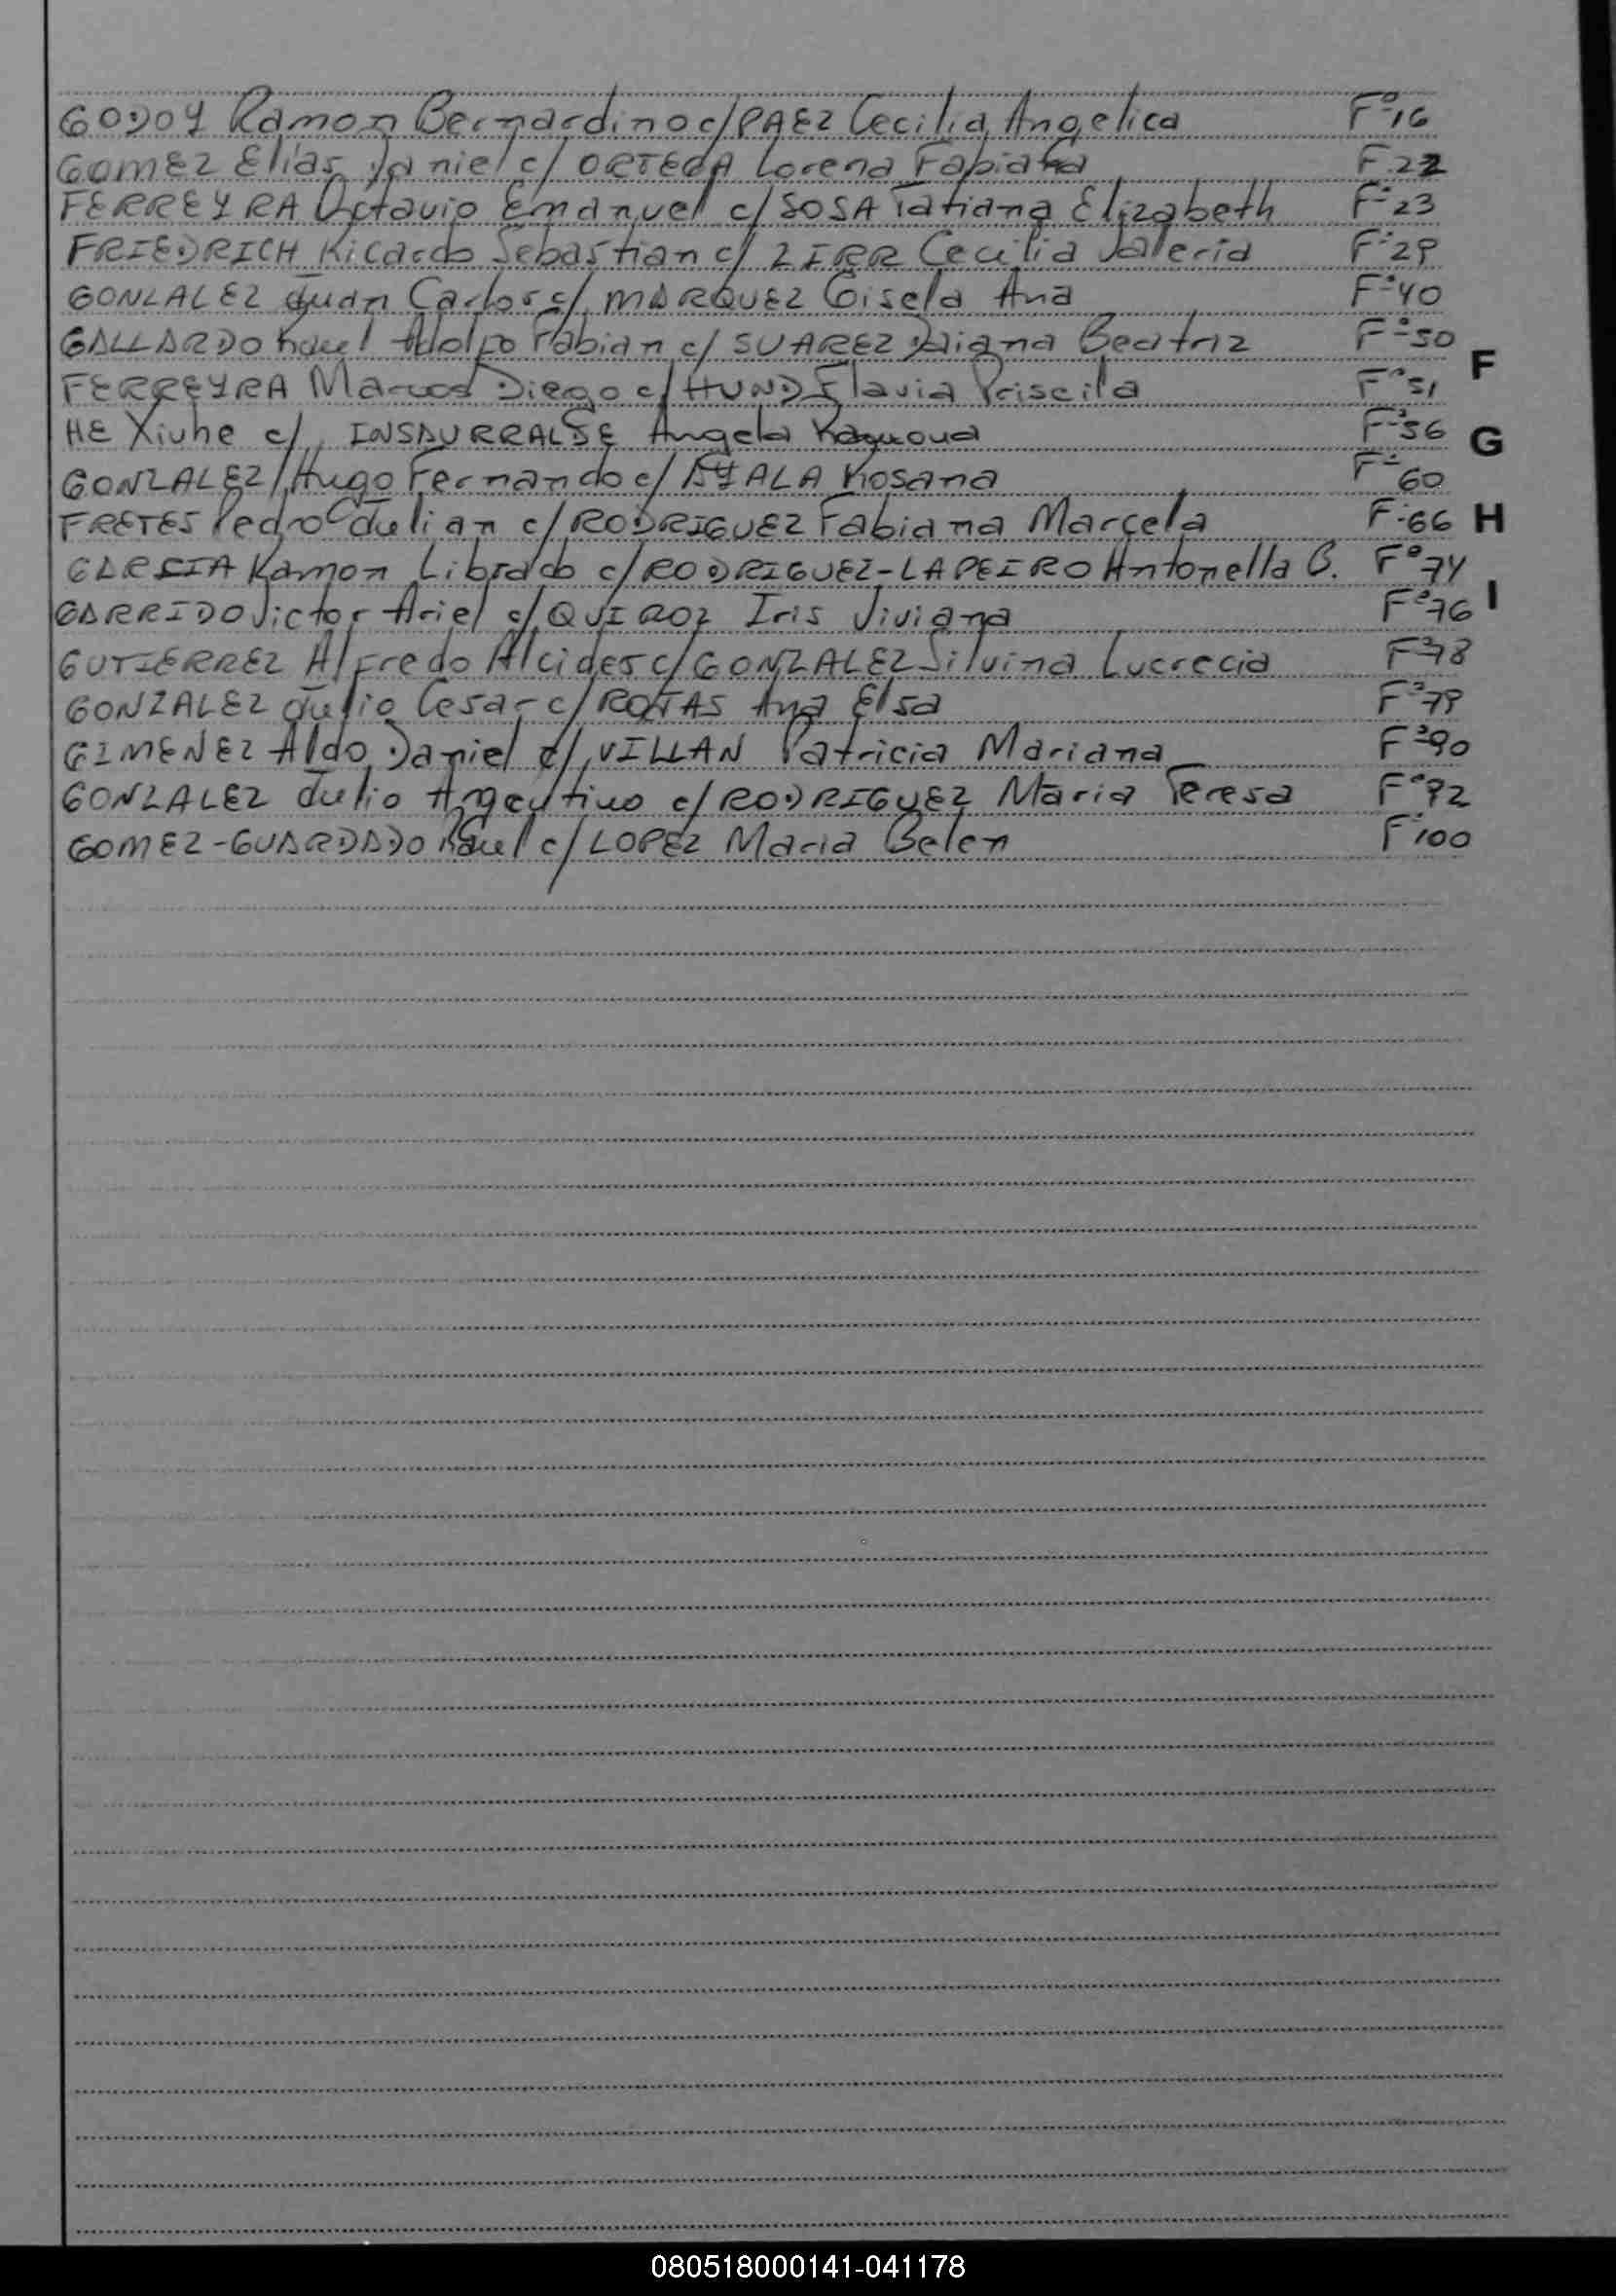 GODOY Ramon Bernardino c/ PAEZ Cecilia Angelica Fº16
GOMEZ Elias Daniel c/ ORTEGA Lorena Fabiana Fº22
FERREYRA Octavio Emanuel c/ SOSA Tatiana Elizabeth Fº23
FRIEDRICH Ricardo Sebastian c/ ZIRR Cecilia Valeria Fº29
GONZALEZ Juan Carlos c/ MARQUEZ Gisela Ana Fº40
GALLARDO Raul Adolfo Fabian c/ SUAREZ Daiana Beatriz Fº50
F
FERREYRA Marcos Diego c/ HUND Flavia Priscila Fº51
HE Xiuhe c/ INSAURRALDE Angela Fº56
G
GONZALEZ Hugo Fernando c/ AYALA Rosana Fº60
FRETES Pedro Julian c/ RODRIGUEZ Fabiana Marcela Fº66
H
GARCIA Ramon Librado c/ RODRIGUEZ-LAPEIRO Antonella B. Fº74
GARRIDO Victor Ariel c/ QUIROZ Iris Viviana Fº76
I
GUTIERREZ Alfredo Alcides c/ GONZALEZ Silvina Lucrecia Fº78
GONZALEZ Julio Cesar c/ ROJAS Ana Elsa Fº79
GIMENEZ Aldo Daniel c/ VILLAN Patricia Mariana Fº90
GONZALEZ Julio Argentino c/ RODRIGUEZ Maria Teresa Fº92
GOMEZ-GUARDADO Raul c/ LOPEZ Maria Belen Fº100
080518000141-041178